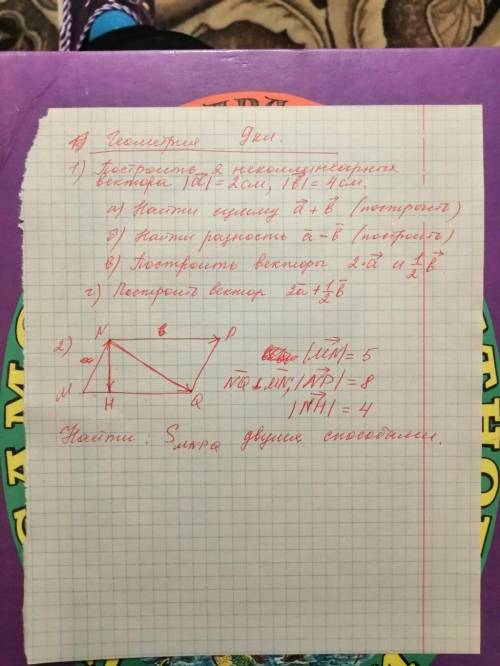 Геометрия 9кл.
1) Построить 2 неколлинеарных
вектора |a⃗| = 2см, |b⃗| = 4см.
а) Найти сумму a⃗ + b⃗ (построить)
б) Найти разность a̅ - b̅ (построить)
в) Построить векторы 2·a⃗ и 1/2 b⃗
г) Построить вектор 2a̅ + 1/2 b̅
N b P
2) a |MN⃗| = 5
NQ⊥MN; |NP⃗| = 8
M H Q
|NH⃗| = 4
Найти: S MNPQ двумя способами.